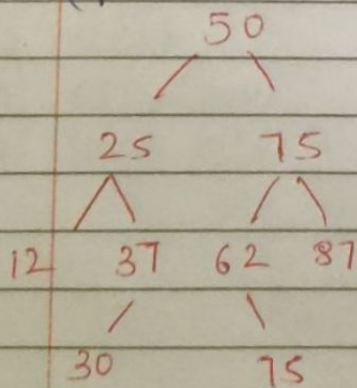 50
25 75
12 37 62 87
30 75